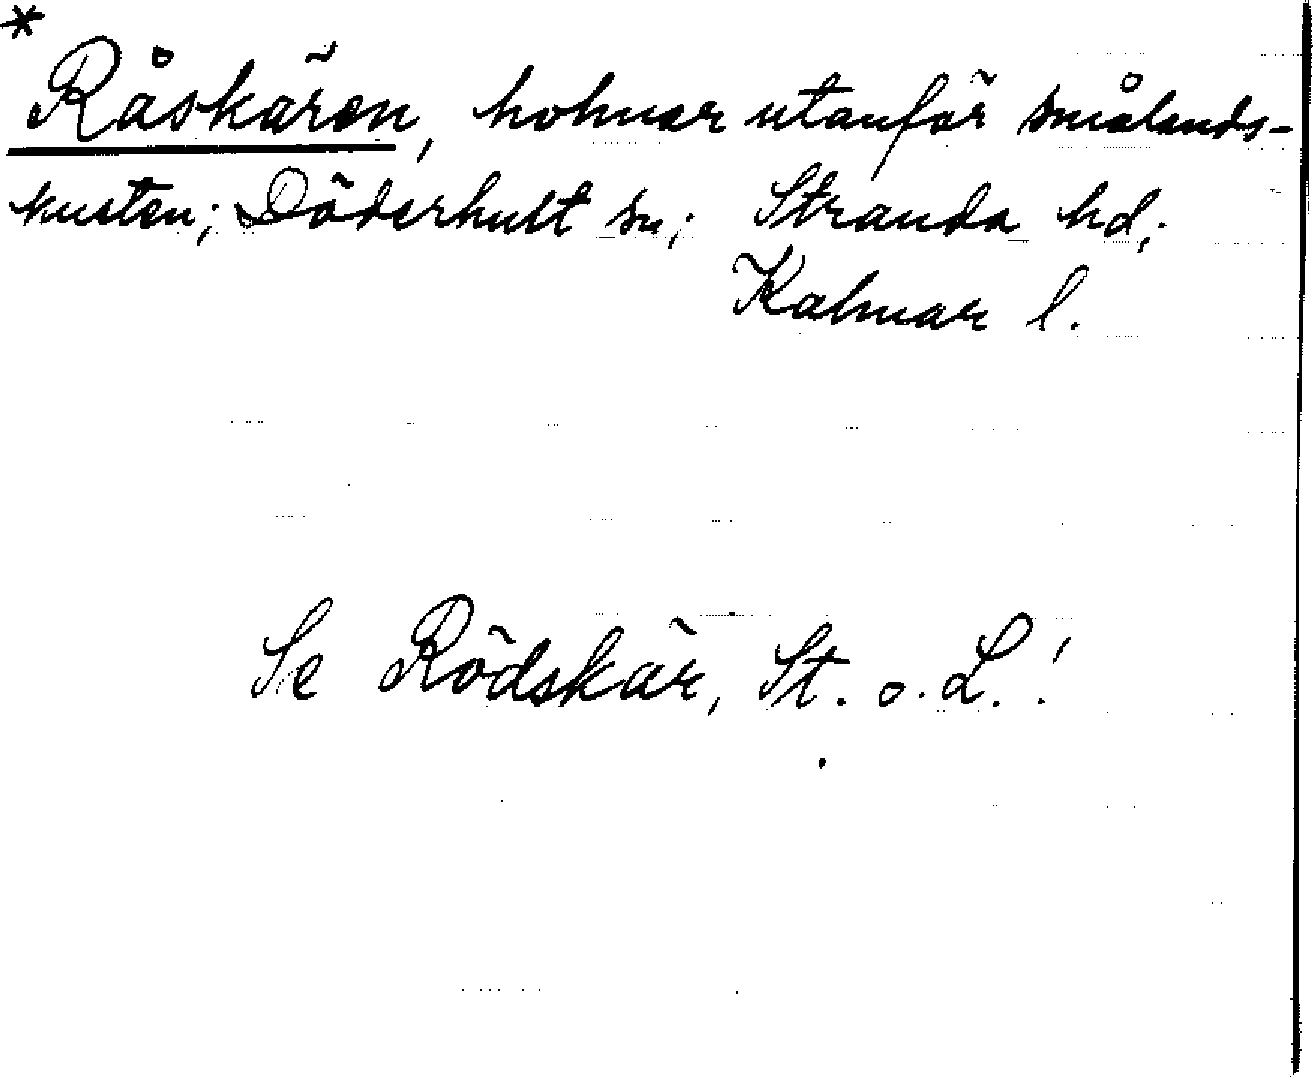 *
Råskären, holmar utanför smålands-
kusten; Döderhult sn; Stranda hd;
Kalmar l.
Se Rödskär, St. o. L.!